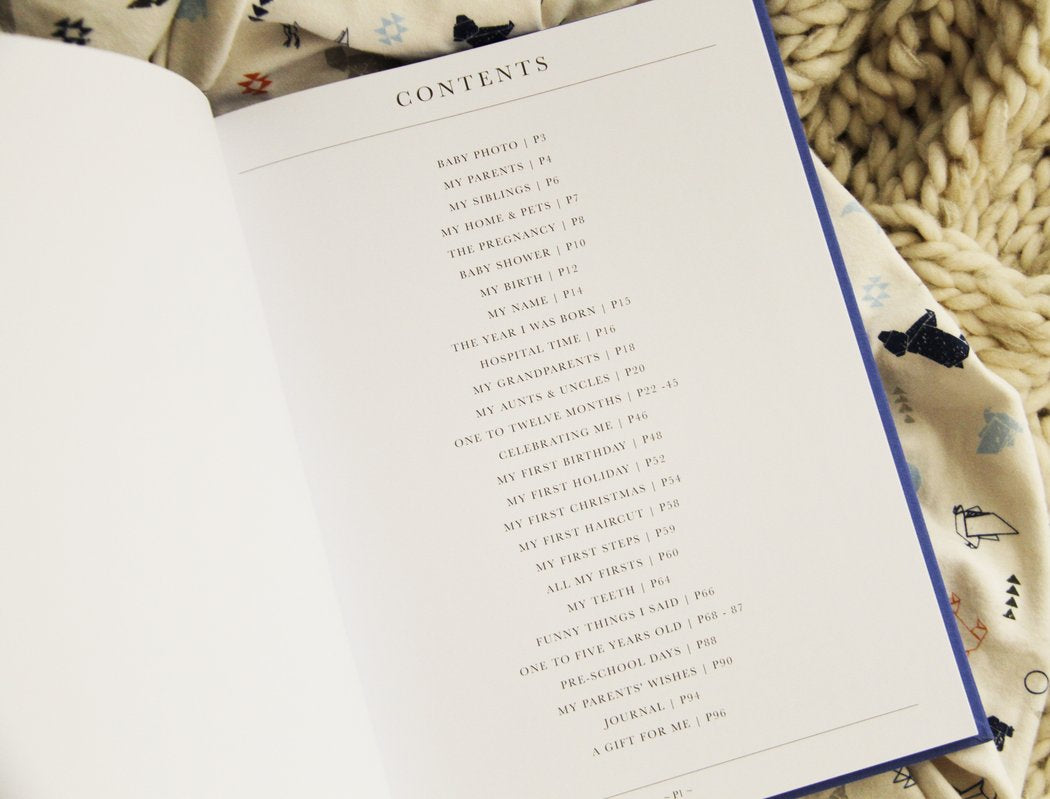 CONTENTS
BABY PHOTO | P3
MY PARENTS | P4
MY SIBLINGS | P6
MY HOME & PETS | P7
THE PREGNANCY | P8
BABY SHOWER | P10
MY BIRTH | P12
MY NAME | P14
THE YEAR I WAS BORN | P15
HOSPITAL TIME | P16
MY GRANDPARENTS | P18
MY AUNTS & UNCLES | P20
ONE TO TWELVE MONTHS | P22 -45
CELEBRATING ME | P46
MY FIRST BIRTHDAY | P48
MY FIRST HOLIDAY | P52
MY FIRST CHRISTMAS | P54
MY FIRST HAIRCUT | P58
MY FIRST STEPS | P59
ALL MY FIRSTS | P60
MY TEETH | P64
FUNNY THINGS I SAID | P66
ONE TO FIVE YEARS OLD | P68 - 87
PRE-SCHOOL DAYS | P88
MY PARENTS' WISHES | P90
JOURNAL | P94
A GIFT FOR ME | P96
~ P1 ~